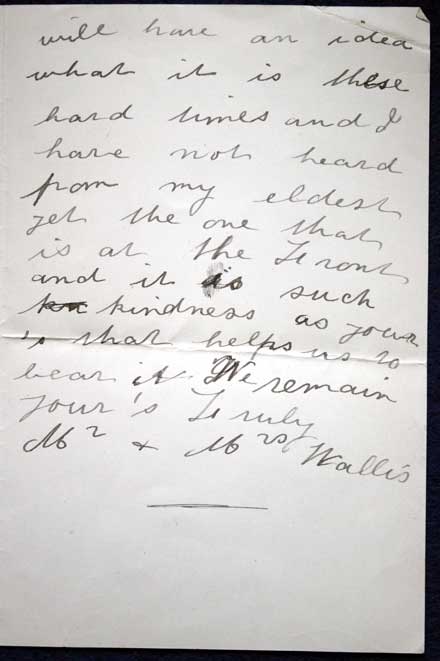 will have an idea
what it is these
hard times and I
have not heard
from my eldest
yet the one that
is at the Front
and it is such
kindness as your
's that helps us to
bear it. We remain
your's Truly
Mr + Mrs Wallis